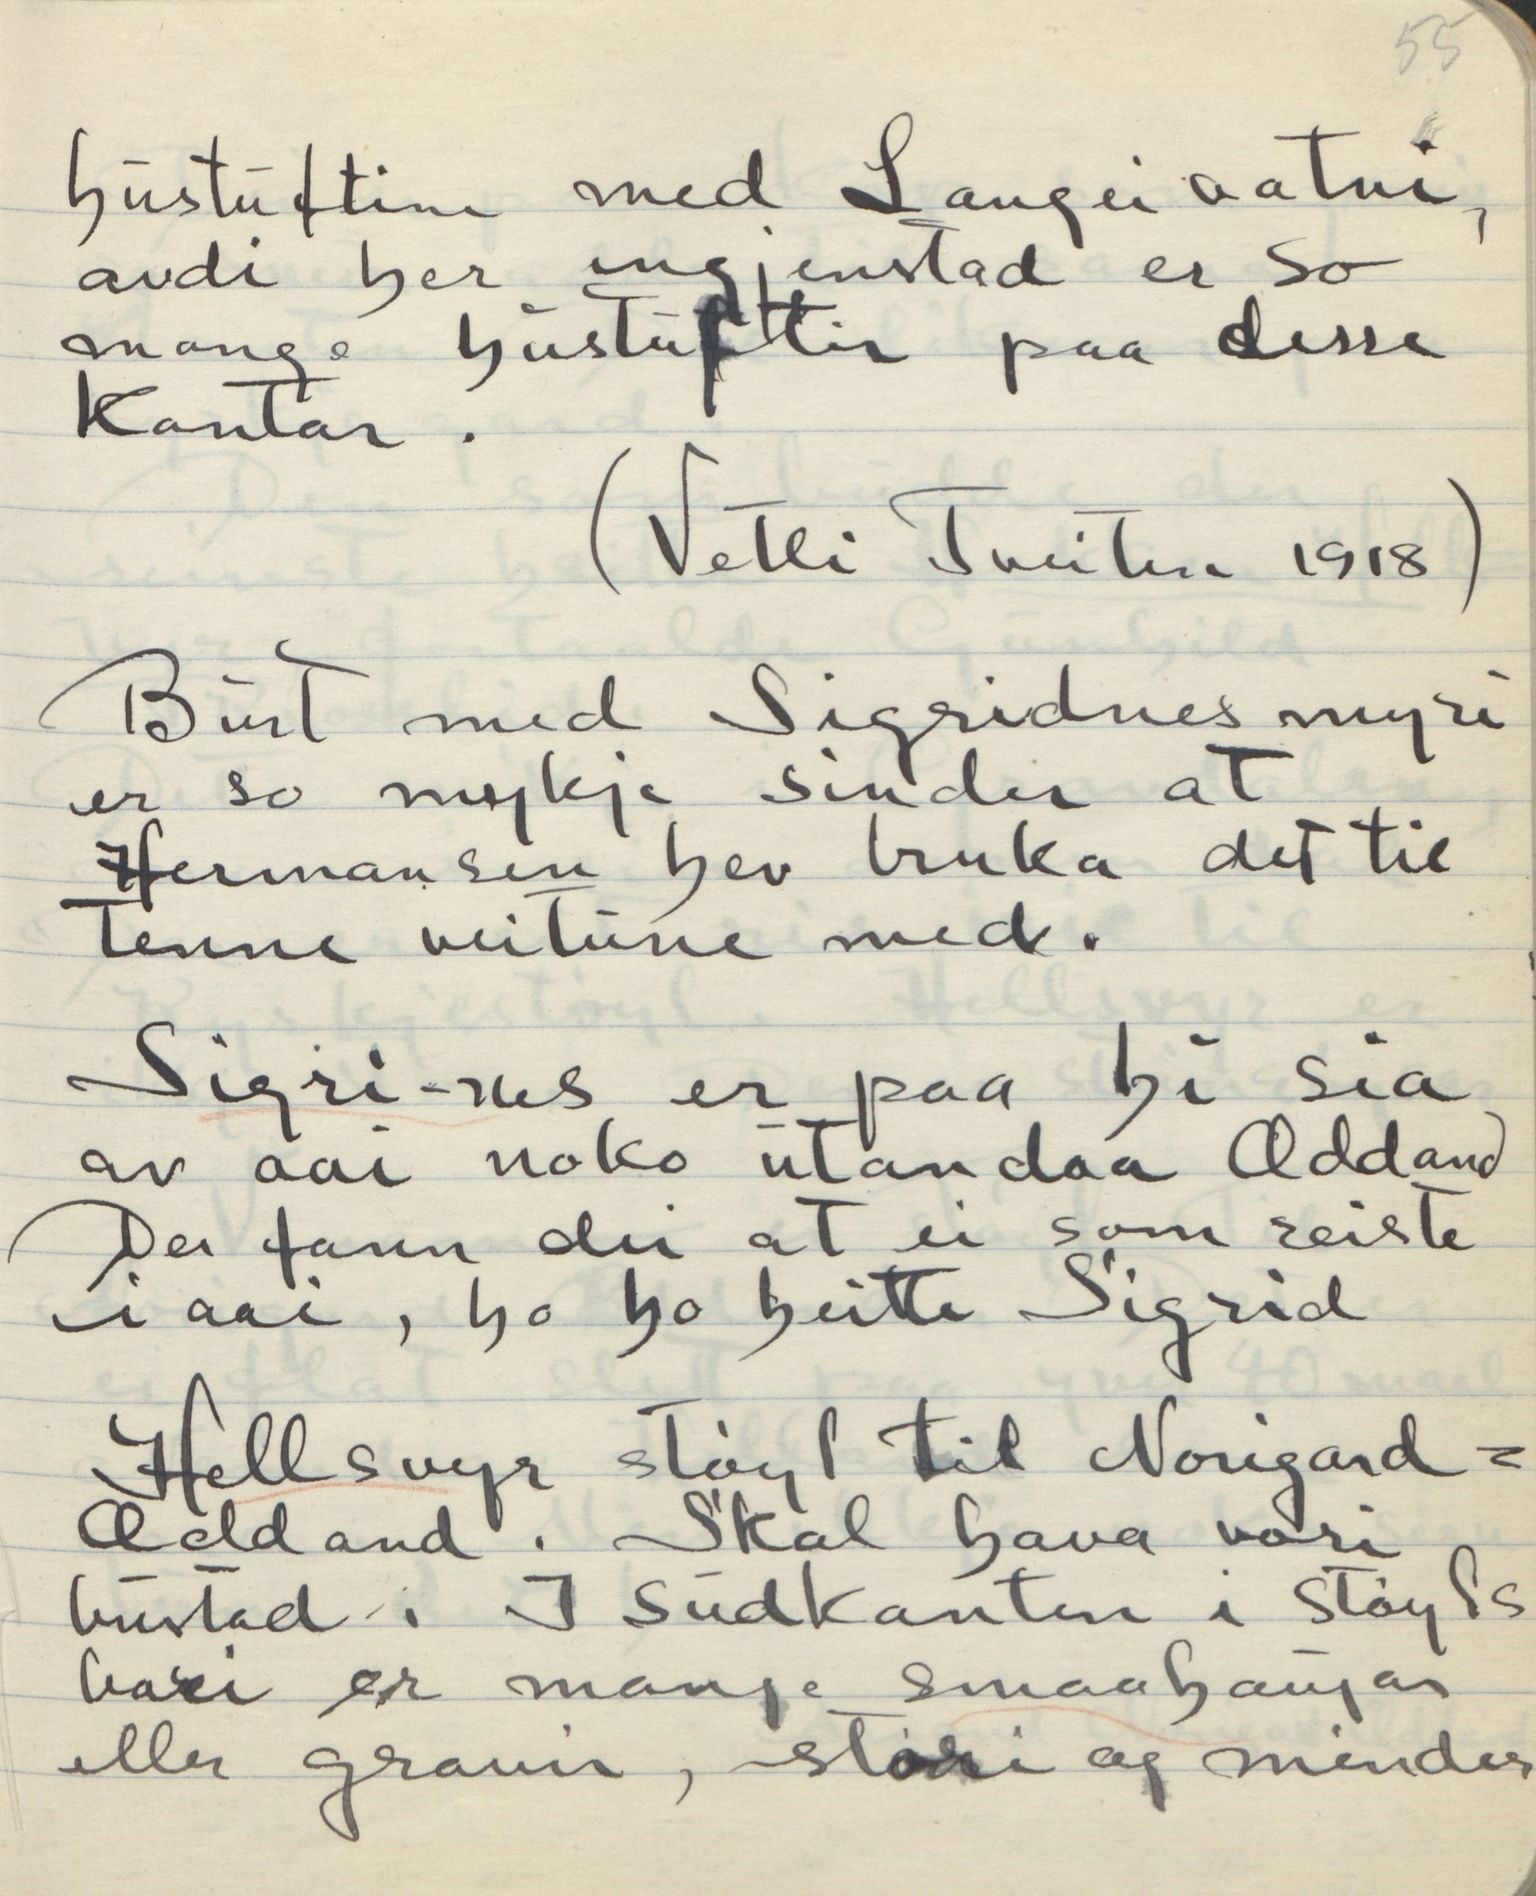 55
hustuftine med Langeivatni,
avdi her ingjenstad er so
mange hustuftir paa desse
Kantar.
(Vetli Tveiten 1918)
Burt med Sigridnesmyri
er so mykje sinder at
Hermansen hev bruka det til
tenne veitune med.
Sigri-nes er paa hi sia
av aai noko utandaa Øddand
Der fann dei at ei som reiste
i aai, ho ho heitte Sigrid
Hellsvyr støyl til Norigard=
Øddand. Skal hava vori
bustad. I Sudkanten i støyls
bøei er mange smaahaugar
eller gravir, støri og minder